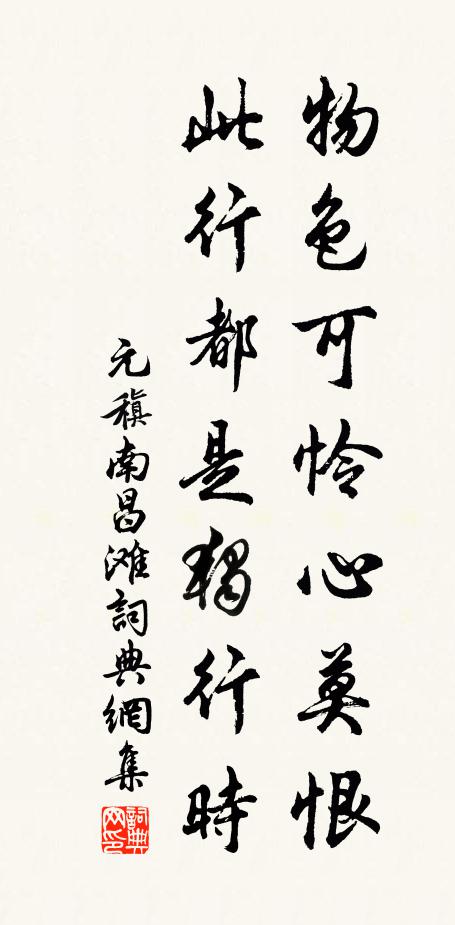 物色可怜心莫恨
此行都是独行時
元稹南昌滩詞典網集
詞典网印